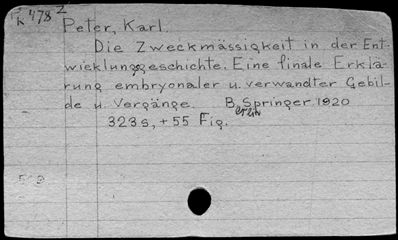 K 478 2
Peter, Karl.
Die Zweckmässigkeit in der Ent-
wicklungsgeschichte. Eine finale Erklä-
rung embryonaler u. verwandter Gebil-
de u. Vorgänge. Berlin, Springer 1920
323 s, + 55 Fig.